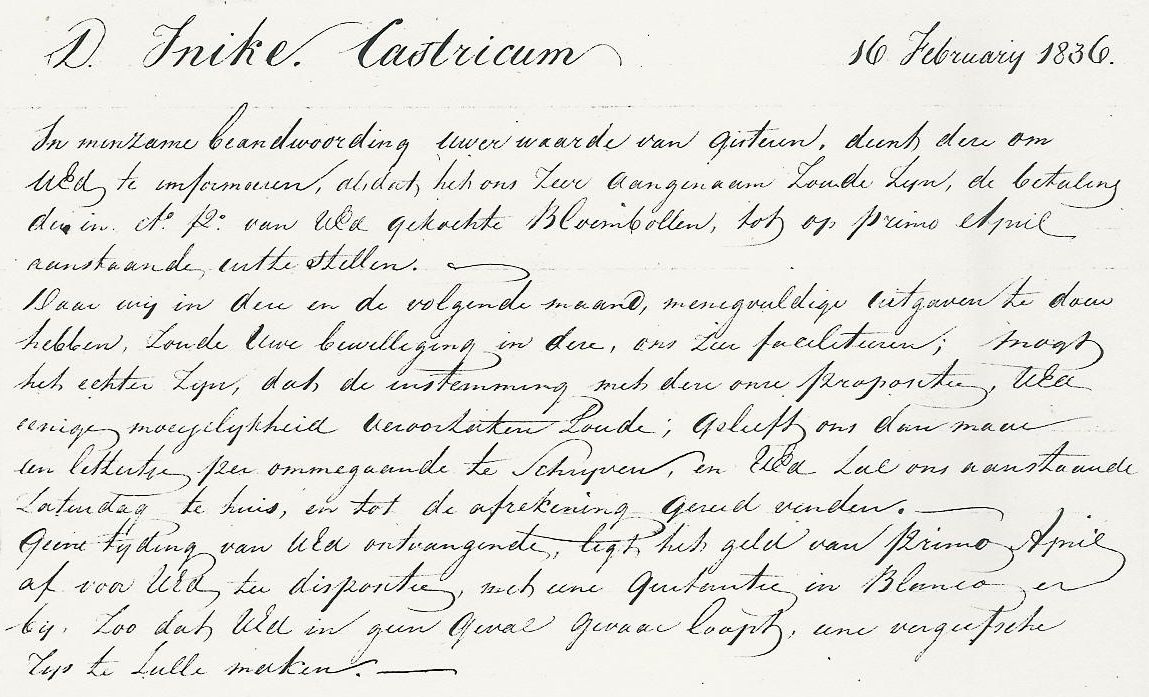 D. Inike. Castricum 16 February 1836.
In minzame beandwoording uwer waarde van gisteren, dient deze om
UEd te informeren, als dat het ons zeer aangenaam zoude zyn, de betaling
der in A.o P.o van UEd gekochte Bloembollen, tot op primo April
aanstaande uit te stellen.
Daar wy in deze en de volgende maand, menigvuldige uitgaven te doen
hebben, zoude Uwe bewilliging in deze, ons zeer faciliteren; mogt
het echter zyn, dat de instemming met deze onze propositie, UEd
eenige moeyelykheid veroorzaken zoude; gelieft ons dan maar
een lettertje per ommegaande te Schryven, en UEd zal ons aanstaande
Zaturdag te huis, en tot de afrekening gereed vinden.
Geene tyding van UEd ontvangende, legt het geld van primo April
af voor UEd ter dispositie, met eene quitantie in Blanco er
by. Zoo dat UEd in geen geval gevaar loopt, eene vergeefsche
rys te zulle maken.